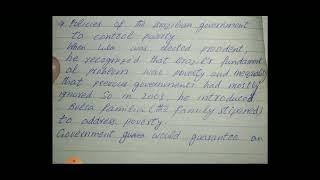 Policies of the Brazilian government
to control poverty
When Lula was elected president,
he recognized that Brazil's fundament
al problems was poverty and inequality
that previous governments had mostly
ignored. So in 2003, he introduced
Bolsa Familia (the family stipend)
to address poverty.
Government would guarantee an